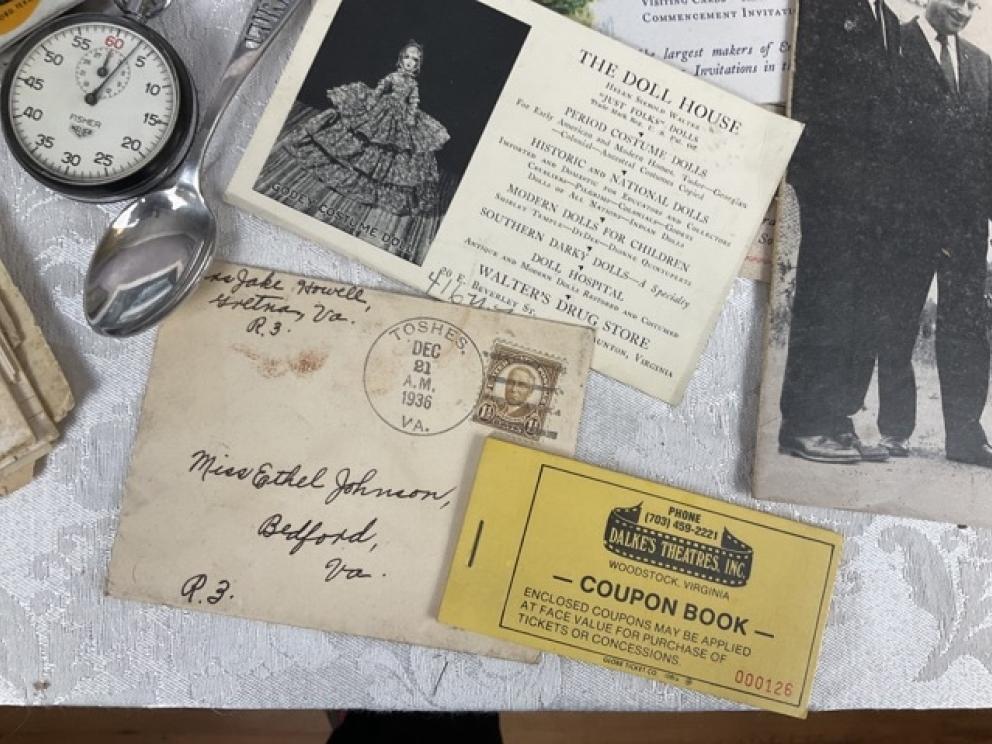 60
55
5
50
10
45
15
40
20
35
25
30
FISHER
HEUER
VISITING CARDS
COMMENCEMENT INVITATI
largest makers of E
Invitations in t
GODEY COSTUME DO
THE DOLL HOUSE
HELEN SIEBOLD WALTER
"JUST FOLKS" DOLLS
TRADE MARK REG. U. S. PAT. OF
PERIOD COSTUME DOLLS
For Early American and Modern Homes, Tudor—Georgian
—Colonial—Ancestral Costumes Copied
HISTORIC and NATIONAL DOLLS
Imported and Domestic for Educators and Collectors
Cavaliers—Pilgrims—Colonials—Godeys
Dolls of All Nations—Indian Dolls
MODERN DOLLS FOR CHILDREN
Shirley Temple—DyDee—Dionne Quintuplets
SOUTHERN DARKY DOLLS—A Specialty
DOLL HOSPITAL
Antique and Modern Dolls Restored and Costumed
WALTER'S DRUG STORE
20 E. BEVERLEY ST.
STAUNTON, VIRGINIA
Jake Nowell,
Gretna, Va.
R.3.
TOSHES.
DEC
21
A.M.
1936
VA.
1½ CENTS 1½
Miss Ethel Johnson,
Bedford,
Va.
R.3.
PHONE
(703) 459-2221
DALKE'S THEATRES, INC
WOODSTOCK, VIRGINIA
— COUPON BOOK —
ENCLOSED COUPONS MAY BE APPLIED
AT FACE VALUE FOR PURCHASE OF
TICKETS OR CONCESSIONS.
GLOBE TICKET CO.
000126